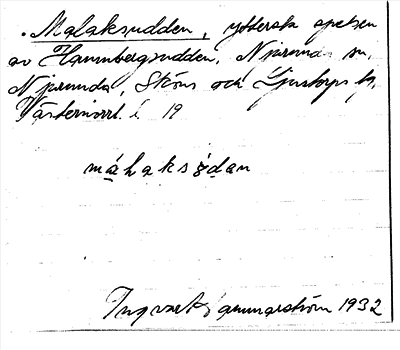 . Malaksudden, yttersta spetsen
av Hamnbergsudden, Njurunda sn,
Njurunda, Sköns och Ljustorps tg,
Västernorrl. l. 19
måhaksùdan
Ingvar gammarström 1932